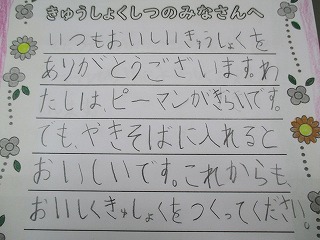 きゅうしょくしつのみなさんへ
いつもおいしいきゅうしょくを
ありがとうございます。わ
たしは、ピーマンがきらいです。
でも、やきそばに入れると
おいしいです。これからも、
おいしくきゅしょくをつくってください。